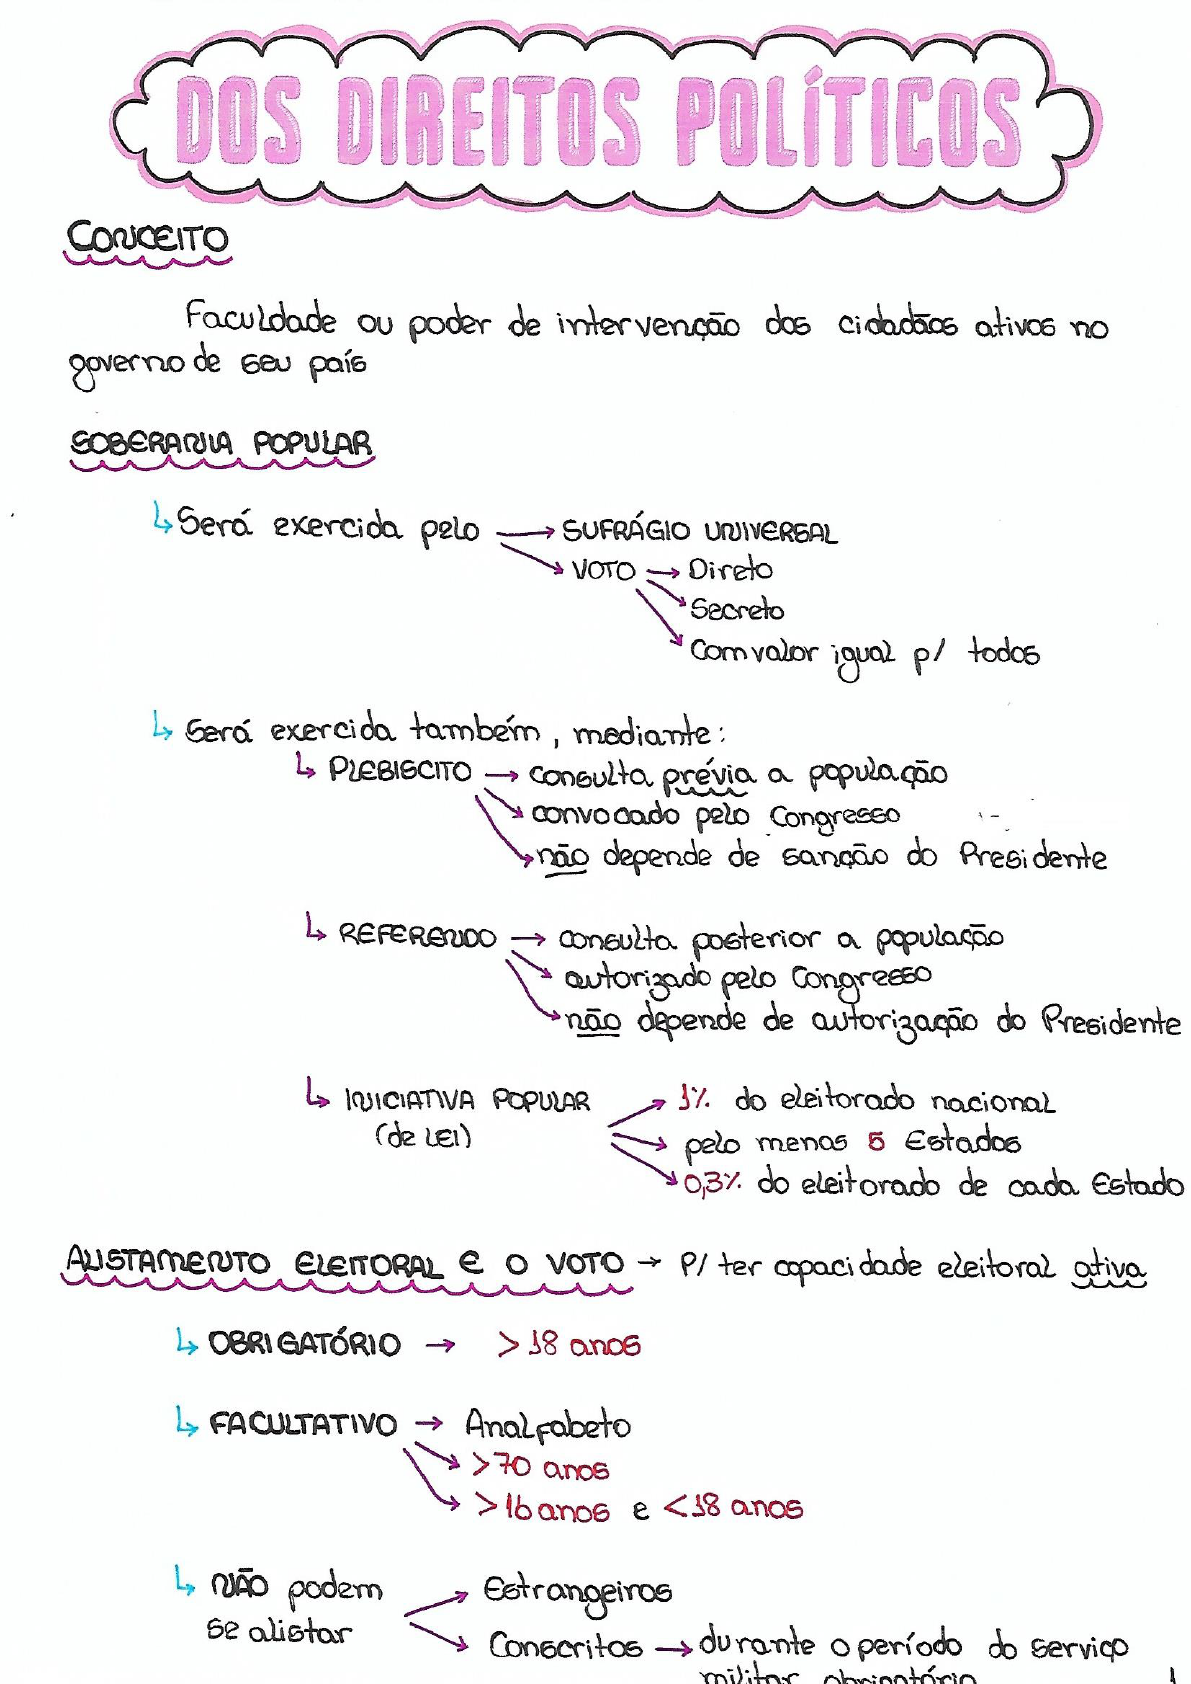 DOS DIREITOS POLÍTICOS
CONCEITO
Faculdade ou poder de intervenção dos cidadãos ativos no
governo de seu país
SOBERANIA POPULAR
↳ Será exercida pelo → SUFRÁGIO UNIVERSAL
→ VOTO → Direto
→ Secreto
→ Com valor igual p/ todos
↳ Será exercida também, mediante:
↳ PLEBISCITO → consulta prévia a população
→ convocado pelo Congresso
→ não depende de sanção do Presidente
↳ REFERENDO → consulta posterior a população
→ autorizado pelo Congresso
→ não depende de autorização do Presidente
↳ INICIATIVA POPULAR → 1% do eleitorado nacional
(de LEI) → pelo menos 5 Estados
→ 0,3% do eleitorado de cada Estado
ALISTAMENTO ELEITORAL E O VOTO → P/ ter capacidade eleitoral ativa
↳ OBRIGATÓRIO → >18 anos
↳ FACULTATIVO → Analfabeto
→ >70 anos
→ >16 anos e <18 anos
↳ NÃO podem → Estrangeiros
se alistar → Conscritos → durante o período do serviço
militar obrigatório